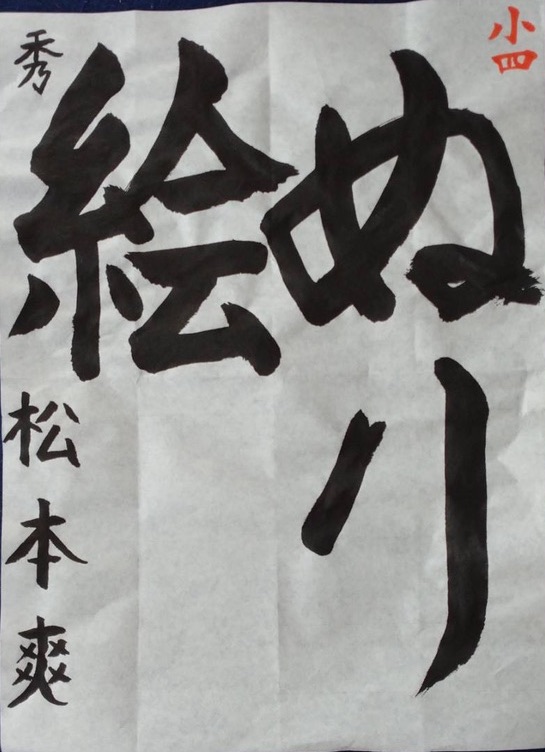 小四
ぬり
絵
秀 松本爽